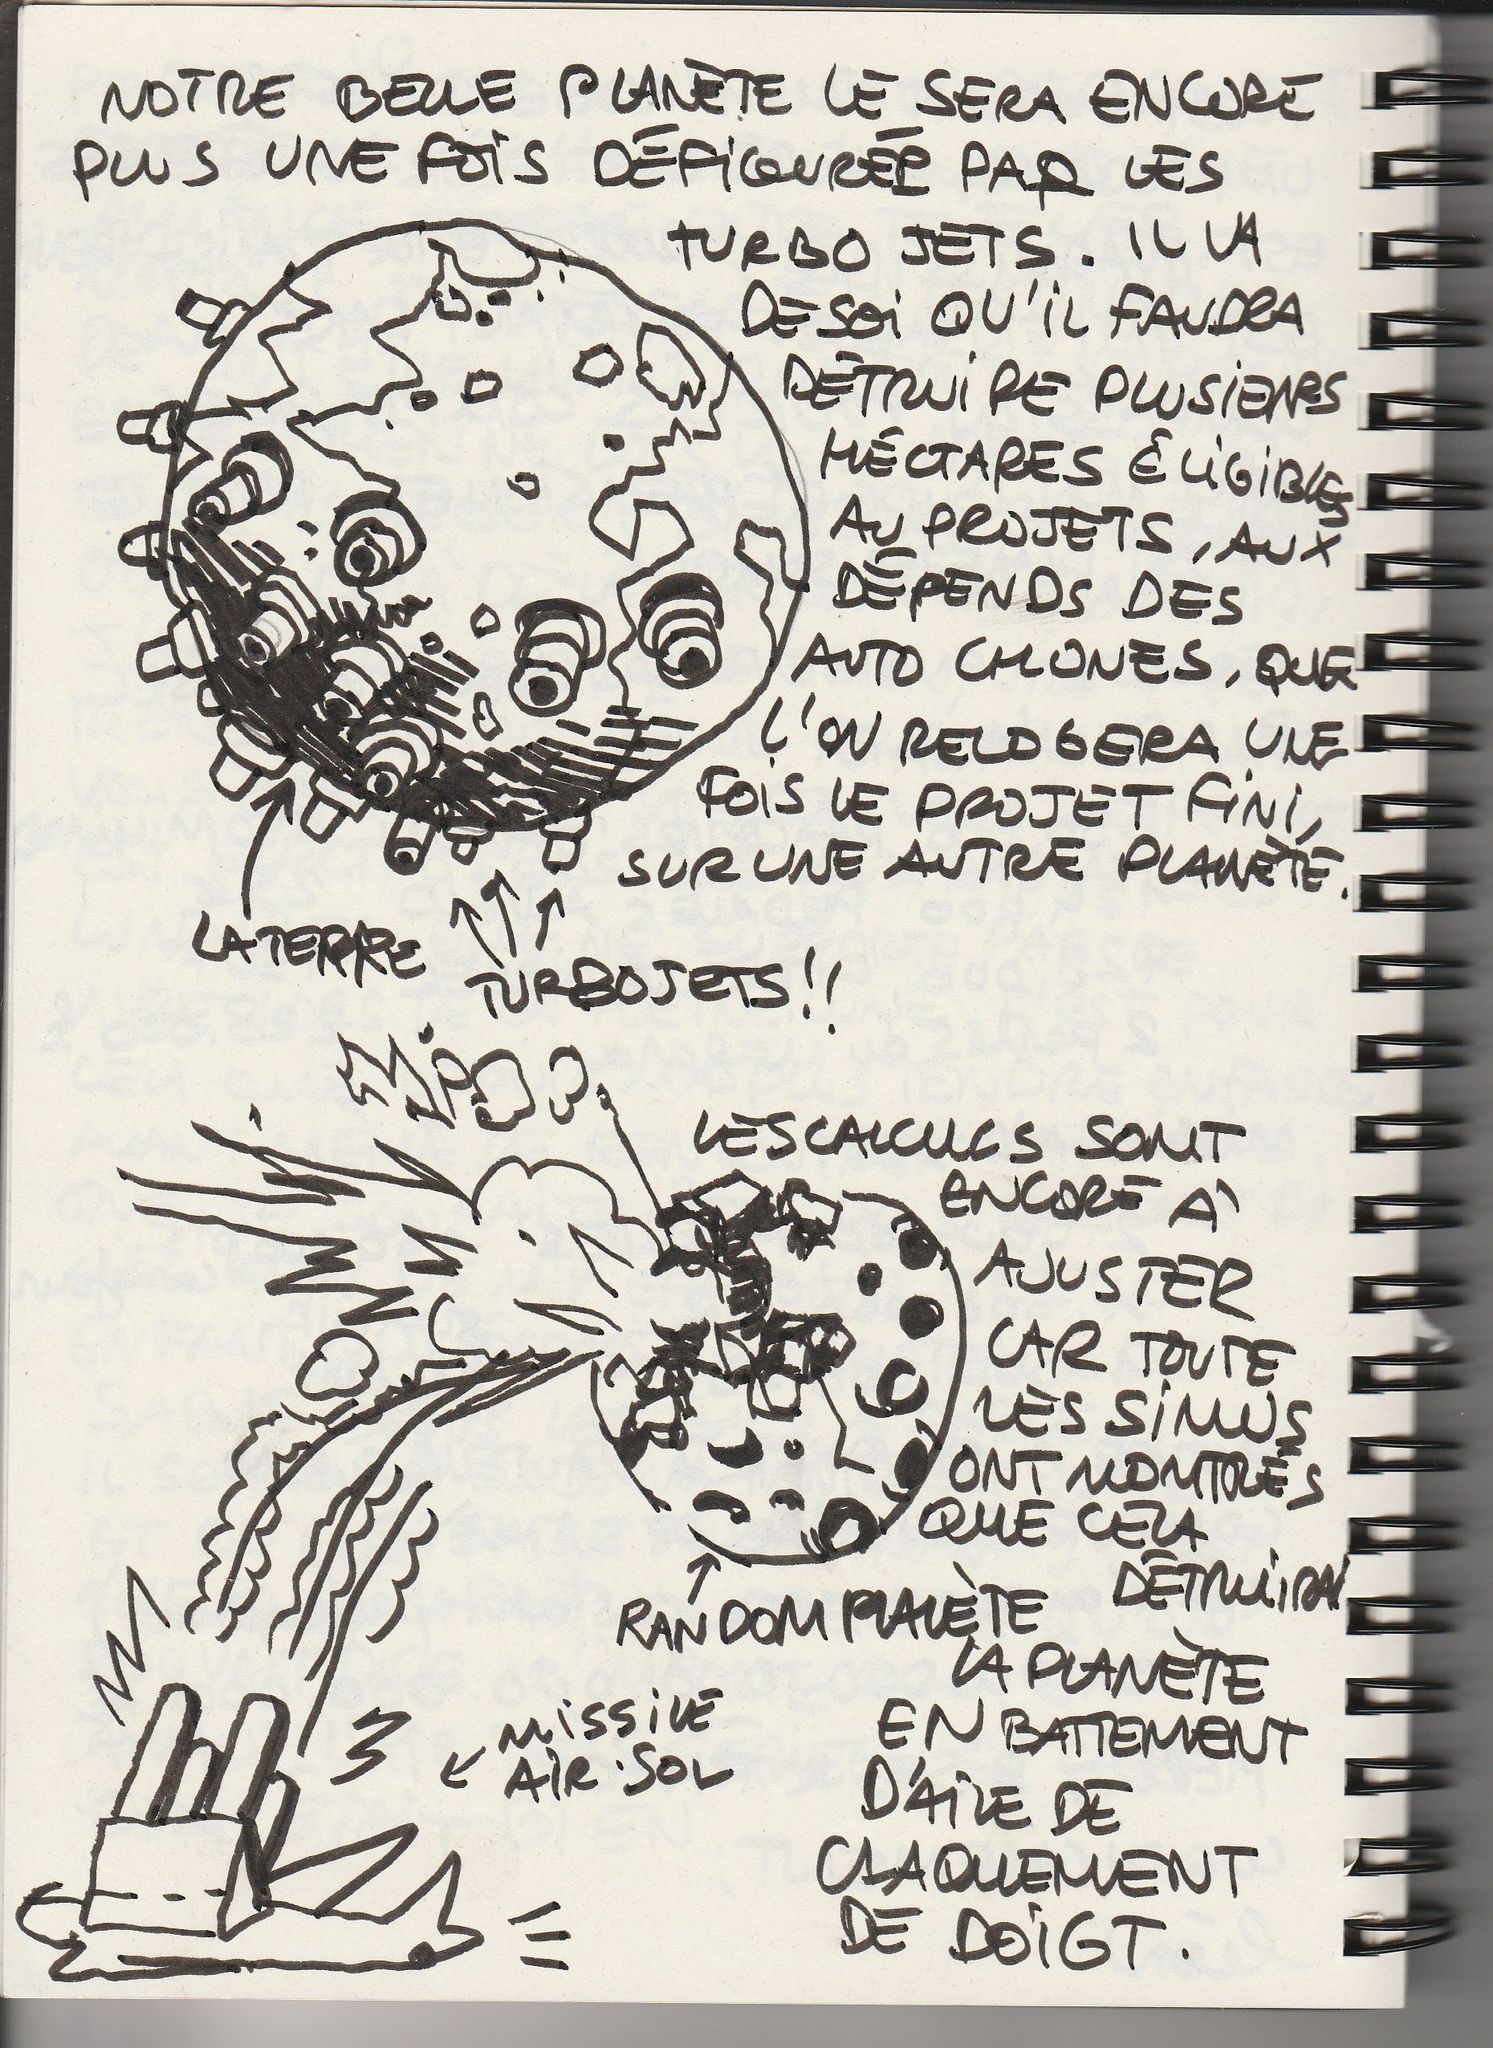 NOTRE BELLE PLANÈTE LE SERA ENCORE
PLUS UNE FOIS DÉFIGURÉE PAR LES
TURBO JETS. IL VA
DE SOI QU'IL FAUDRA
DÉTRUIRE PLUSIEURS
HÉCTARES ÉLIGIBLES
AU PROJETS, AUX
DÉPENDS DES
AUTO CHLONES, QUE
L'ON RELOGERA UNE
FOIS LE PROJET FINI,
SUR UNE AUTRE PLANÈTE.
LA TERRE
TURBOJETS!!
LES CALCULS SONT
ENCORE À
AJUSTER
CAR TOUTE
LES SIMUS
ONT MONTRÉS
QUE CELA
DÉTRUIRAI
LA PLANÈTE
EN BATTEMENT
D'AILE DE
CLAQUEMENT
DE DOIGT.
RANDOM PLANÈTE
MISSILE
AIR-SOL